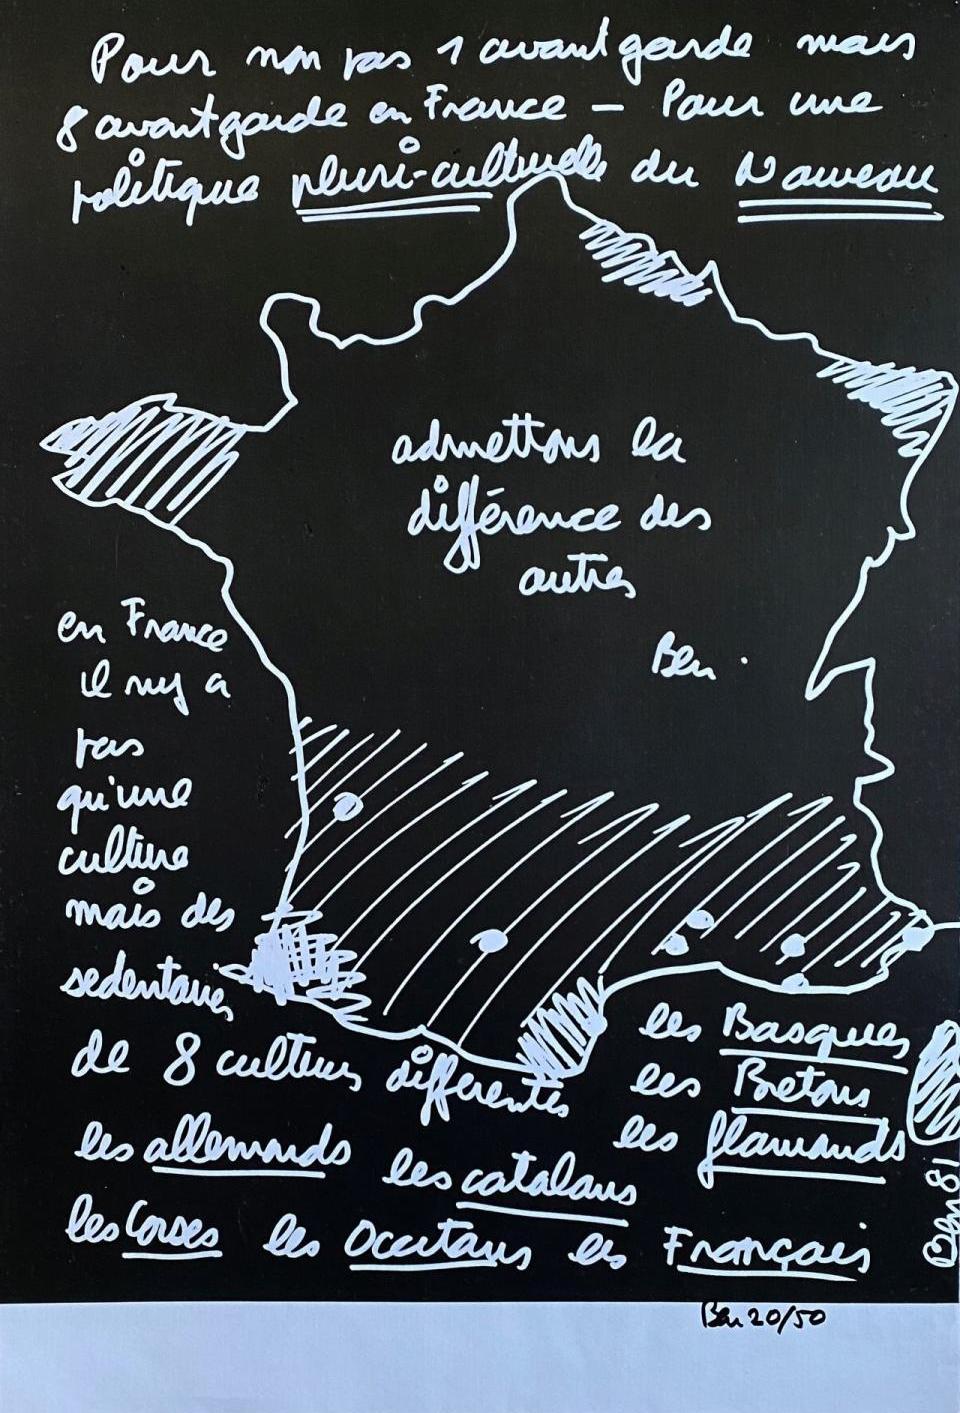 Pour non pas 1 avant garde mais
8 avant garde en France – Pour une
politique pluri-culturelle du Nouveau
admettons la
différence des
autres
Ben.
en France
il ny a
pas
qu'une
culture
mais des
sedentaires
de 8 cultures différentes
les Basques
les Bretons
les flamands
les allemands les catalans
les Corses les Occitans les Français
Ben 81
Ben 20/50